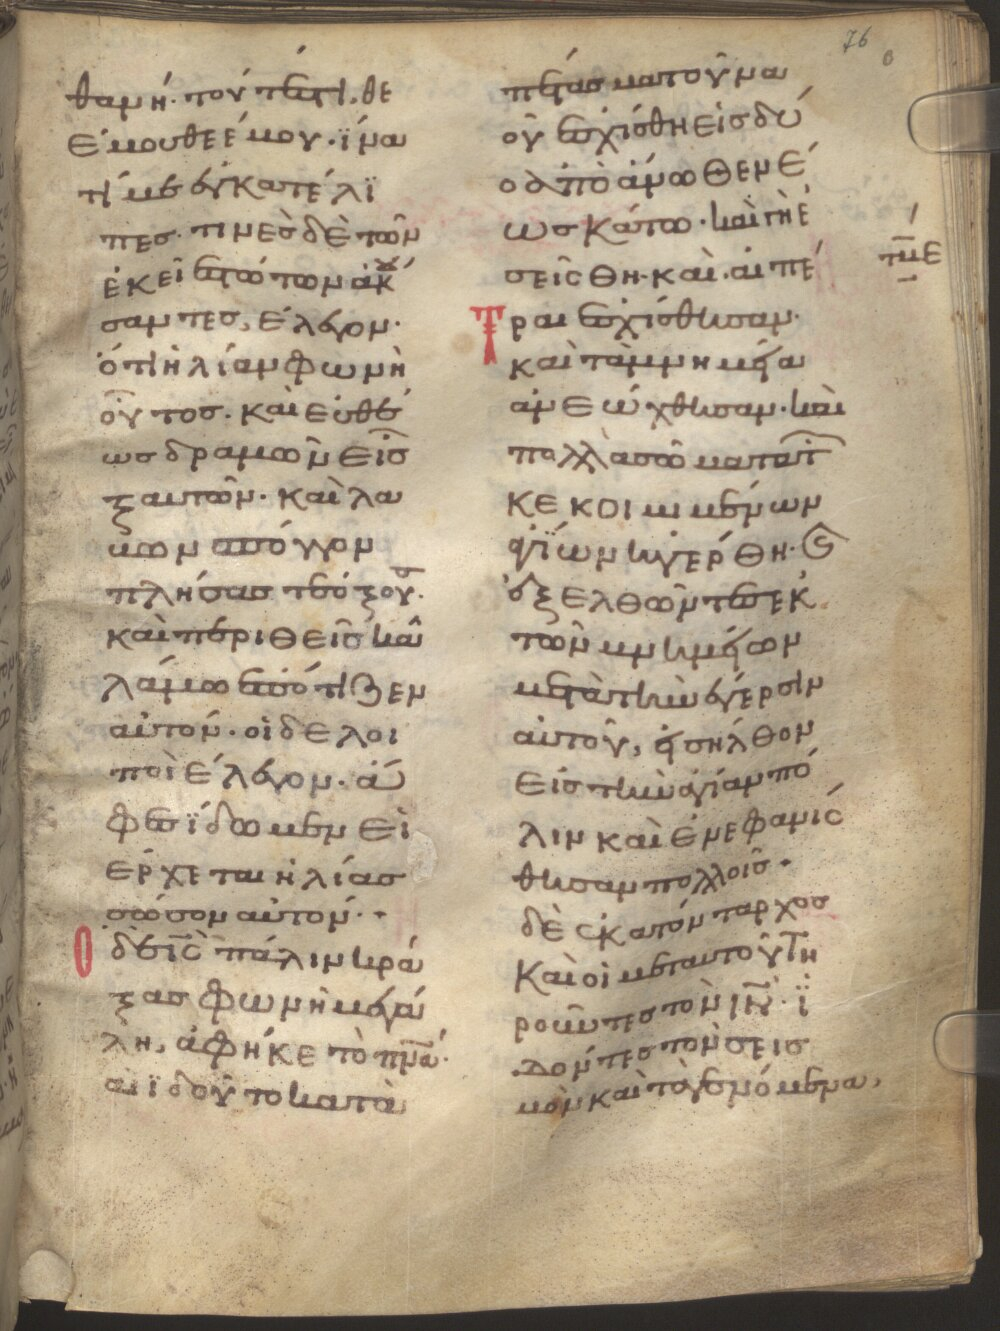 76
θανή· τοῦτέστι, θε
έ μου θεέ μου· ἵνα
τί με ἐγκατέλι
πες· τινὲς δὲ τῶν
ἐκεῖ ἑστώτων ἀκου
σαντες, ἔλεγον·
ὅτι ἡλίαν φωνεῖ
οὗτος· καὶ εὐθέ
ως δραμὼν εἷς
ἐξ αὐτῶν· καὶ λα
βὼν σπόγγον
πλήσας τε ὄξους·
καὶ περιθεὶς κα
λάμω ἐπότιζεν
αὐτόν· οἱ δὲ λοι
ποὶ ἔλεγον· ἄ
φες ἴδωμεν εἰ
ἔρχεται ἡλίας
σώσων αὐτόν·
Ὁ δὲ ις πάλιν κρά
ξας φωνῆ μεγά
λη, ἀφῆκε τὸ πνα·
καὶ ἰδοὺ τὸ κατα
πέτασμα τοῦ να
οῦ ἐσχίσθη εἰς δύ
ο ἀπὸ ἄνωθεν ἕ
ως κάτω· καὶ ἡ γῆ ἐ
σείσθη· καὶ αἱ πέ
τμε
τραι ἐσχίσθησαν·
καὶ τὰ μνημεῖα
ἀνεώχθησαν· καὶ
πολλὰ σώματα τῶν
κεκοιμημένων
ἁγίων ἠγέρθη· καὶ
ἐξελθόντες ἐκ
τῶν μνημείων
μετὰ τὴν ἔγερσιν
αὐτοῦ, εἰσῆλθον
εἰς τὴν ἁγίαν πό
λιν καὶ ἐνεφανίσ
θησαν πολλοῖς·
δὲ ἑκατόνταρχος
καὶ οἱ μετ αὐτοῦ τη
ροῦντες τὸν ιν· ἰ
δόντες τὸν σεισ
μὸν καὶ τὰ γενόμενα,